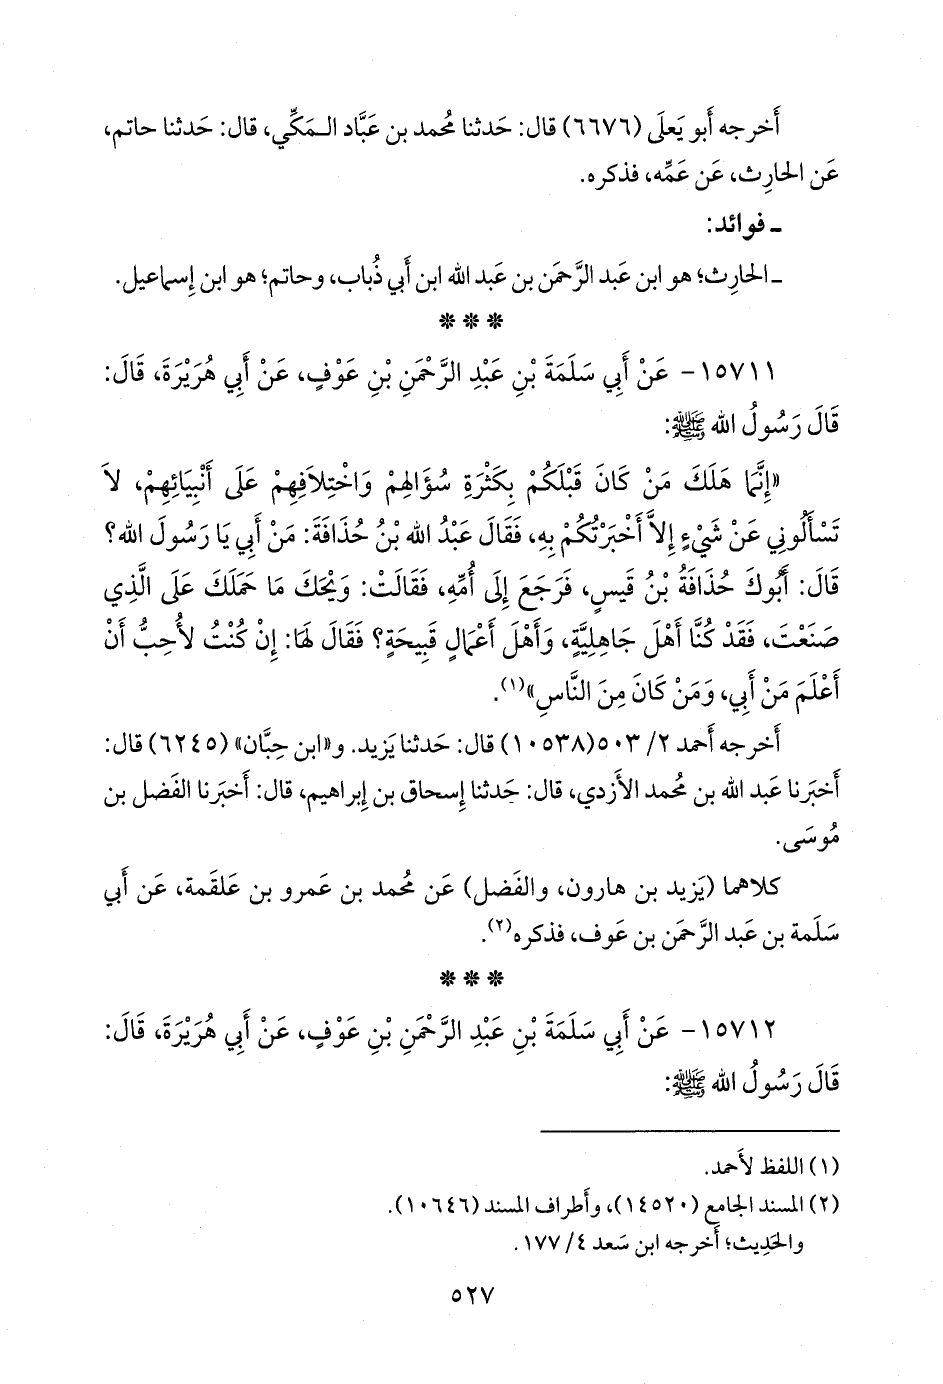 أَخرجه أَبو يَعلَى (٦٦٧٦) قال: حَدثنا مُحمد بن عَبَّاد الـمَكِّي، قال: حَدثنا حاتم،
عَن الحارِث، عَن عَمِّه، فذكره.
ـ فوائد:
ـ الحارِث؛ هو ابن عَبد الرَّحمَن بن عَبد الله ابن أَبي ذُباب، وحاتم؛ هو ابن إِسماعيل.
* * *
١٥٧١١- عَنْ أَبِي سَلَمَةَ بْنِ عَبْدِ الرَّحْمَنِ بْنِ عَوْفٍ، عَنْ أَبِي هُرَيْرَةَ، قَالَ:
قَالَ رَسُولُ الله ﷺ:
«إِنَّمَا هَلَكَ مَنْ كَانَ قَبْلَكُمْ بِكَثْرَةِ سُؤَالِهِمْ وَاخْتِلَافِهِمْ عَلَى أَنْبِيَائِهِمْ، لَا
تَسْأَلُونِي عَنْ شَيْءٍ إِلاَّ أَخْبَرْتُكُمْ بِهِ، فَقَالَ عَبْدُ الله بْنُ حُذَافَةَ: مَنْ أَبِي يَا رَسُولَ الله؟
قَالَ: أَبُوكَ حُذَافَةُ بْنُ قَيسٍ، فَرَجَعَ إِلَى أُمِّهِ، فَقَالَتْ: وَيْحَكَ مَا حَمَلَكَ عَلَى الَّذِي
صَنَعْتَ، فَقَدْ كُنَّا أَهْلَ جَاهِلِيَّةٍ، وَأَهْلَ أَعْمَالٍ قَبِيحَةٍ؟ فَقَالَ لَهَا: إِنْ كُنْتُ لأُحِبُّ أَنْ
أَعْلَمَ مَنْ أَبِي، وَمَنْ كَانَ مِنَ النَّاسِ»(١).
أَخرجه أَحمد ٢/ ٥٠٣(١٠٥٣٨) قال: حَدثنا يَزيد. و«ابن حِبَّان» (٦٢٤٥) قال:
أَخبَرنا عَبد الله بن مُحمد الأَزدي، قال: حَدثنا إِسحاق بن إِبراهيم، قال: أَخبَرنا الفَضل بن
مُوسَى.
كلاهما (يَزيد بن هارون، والفَضل) عَن مُحمد بن عَمرو بن عَلقَمة، عَن أَبي
سَلَمة بن عَبد الرَّحمَن بن عَوف، فذكره(٢).
* * *
١٥٧١٢- عَنْ أَبِي سَلَمَةَ بْنِ عَبْدِ الرَّحْمَنِ بْنِ عَوْفٍ، عَنْ أَبِي هُرَيْرَةَ، قَالَ:
قَالَ رَسُولُ الله ﷺ:
(١) اللفظ لأَحمد.
(٢) المسند الجامع (١٤٥٢٠)، وأَطراف المسند (١٠٦٤٦).
والحَدِيث؛ أَخرجه ابن سَعد ٤/ ١٧٧.
٥٢٧